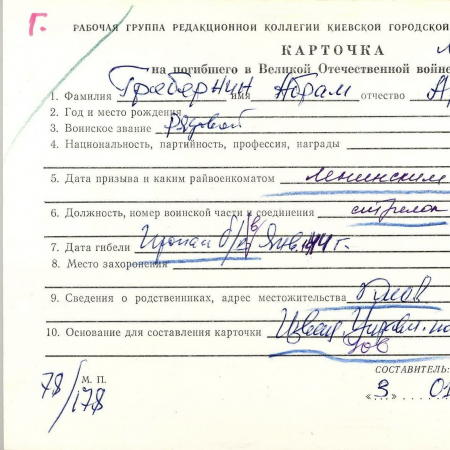 Г.
РАБОЧАЯ ГРУППА РЕДАКЦИОННОЙ КОЛЛЕГИИ КИЕВСКОЙ ГОРОДСКОЙ
КАРТОЧКА
на погибшего в Великой Отечественной войне
1. Фамилия Грабернин имя Абрам отчество
2. Год и место рождения
3. Воинское звание рядовой
4. Национальность, партийность, профессия, награды
5. Дата призыва и каким райвоенкоматом Ленинским
6. Должность, номер воинской части и соединения стрелок
7. Дата гибели Пропал б/в Янв. 44 г.
8. Место захоронения
9. Сведения о родственниках, адрес местожительства
10. Основание для составления карточки
М. П.
78/178
СОСТАВИТЕЛЬ:
«3»